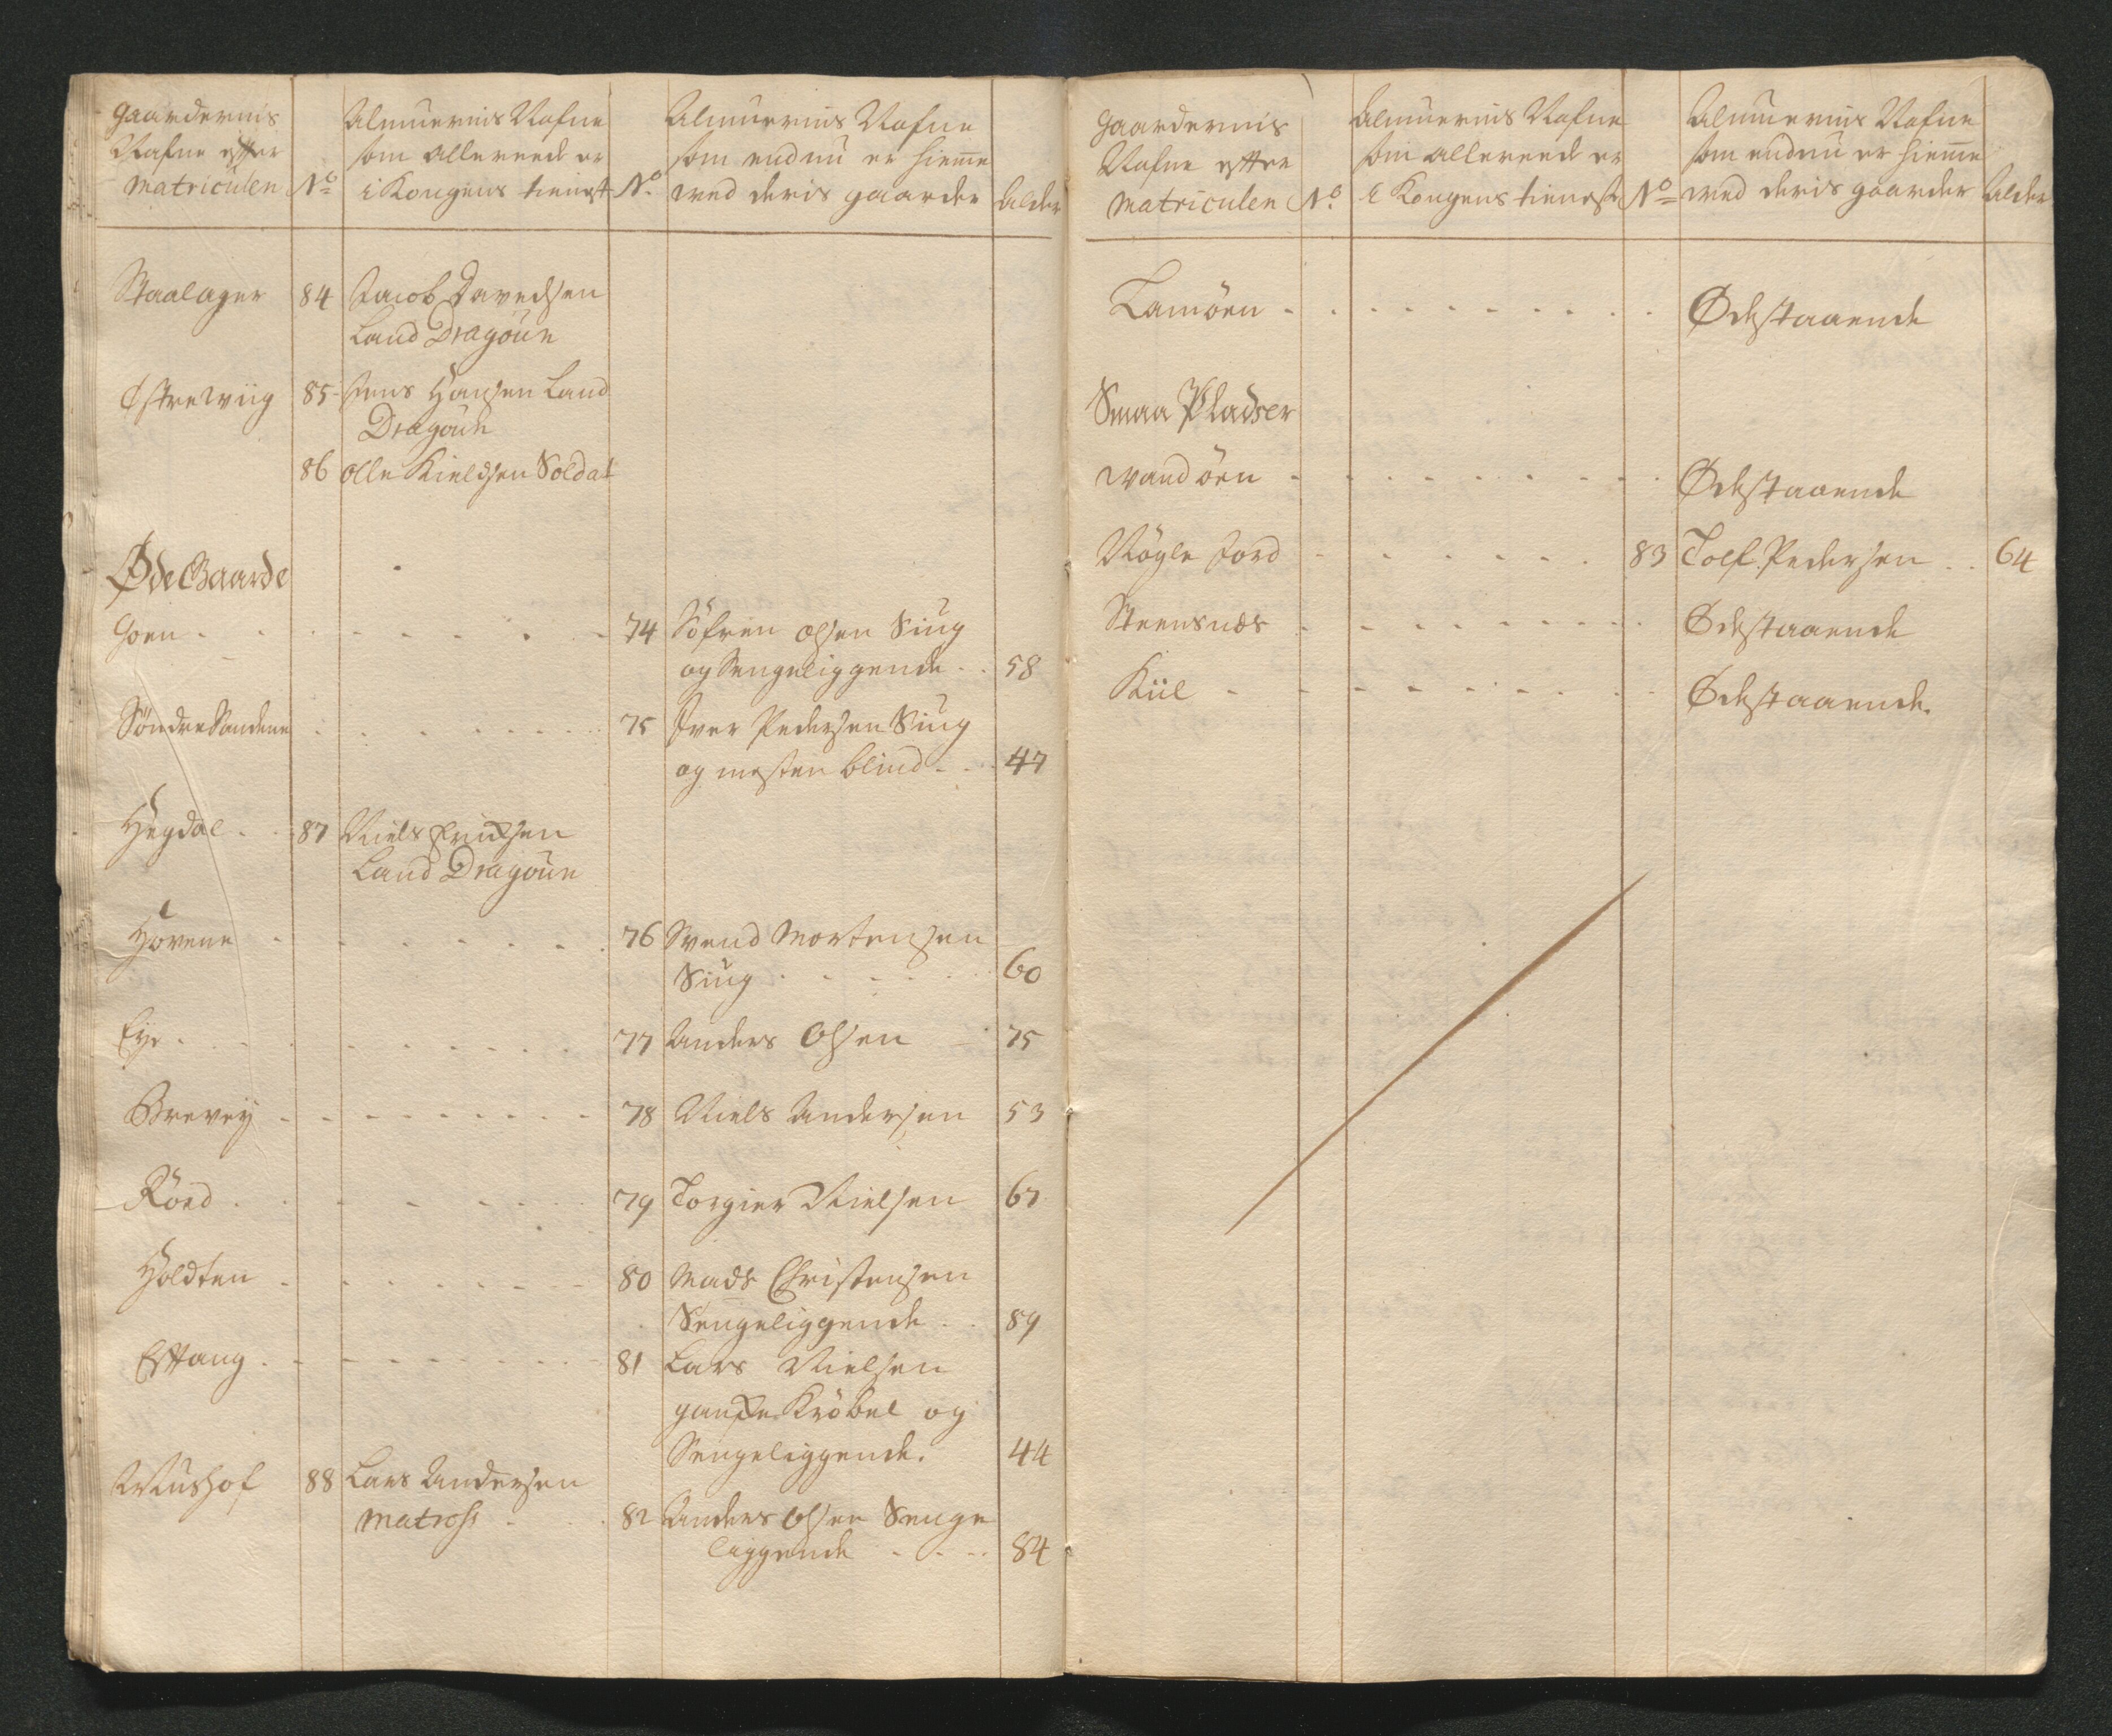 Gaardernis Nafne efter Matriculen
No
Almuernis Nafne som allereede er i Kongens tienest
No
Almuernis Nafne som endnu er hiemme ved deris gaarder
Alder
Staalager 84 Jacob Davedsen
Land Dragoun
Østre wiig 85 Jens Hansen Land
Dragoun
86 Olle Kieldsen Soldat
Øde Gaarde
Goen 74 Söfren Olsen Siug
og Sengeliggende 58
Söndre Sandene 75 Iver Pedersen Siug
og mesten blind 47
Hegdal 87 Niels Erichsen
Land Dragoun
Hovene 76 Svend Mortensen
Siug 60
Eye 77 Anders Olsen 75
Brevey 78 Niels Andersen 53
Röed 79 Torgier Nielsen 67
Holdten 80 Mads Christensen
Sengeliggende 89
Eftang 81 Lars Nielsen
ganske Kröbel og
Sengeliggende. 44
88 Lars Andersen
Matrohs 82 Anders Olsen Senge
liggende 84
Gaardernis Nafne efter Matriculen
No
Almuernis Nafne som allereede er i Kongens tieneste
No
Almuernis Nafne som endnu er hiemme ved deris gaarder
Alder
Lamöen Ødestaaende
Smaa Pladser
Wandöen Ødestaaende
Nögle Jord 83 Tolf Pedersen 64
Steensnes Ødestaaende
Kiil Ødestaaende.